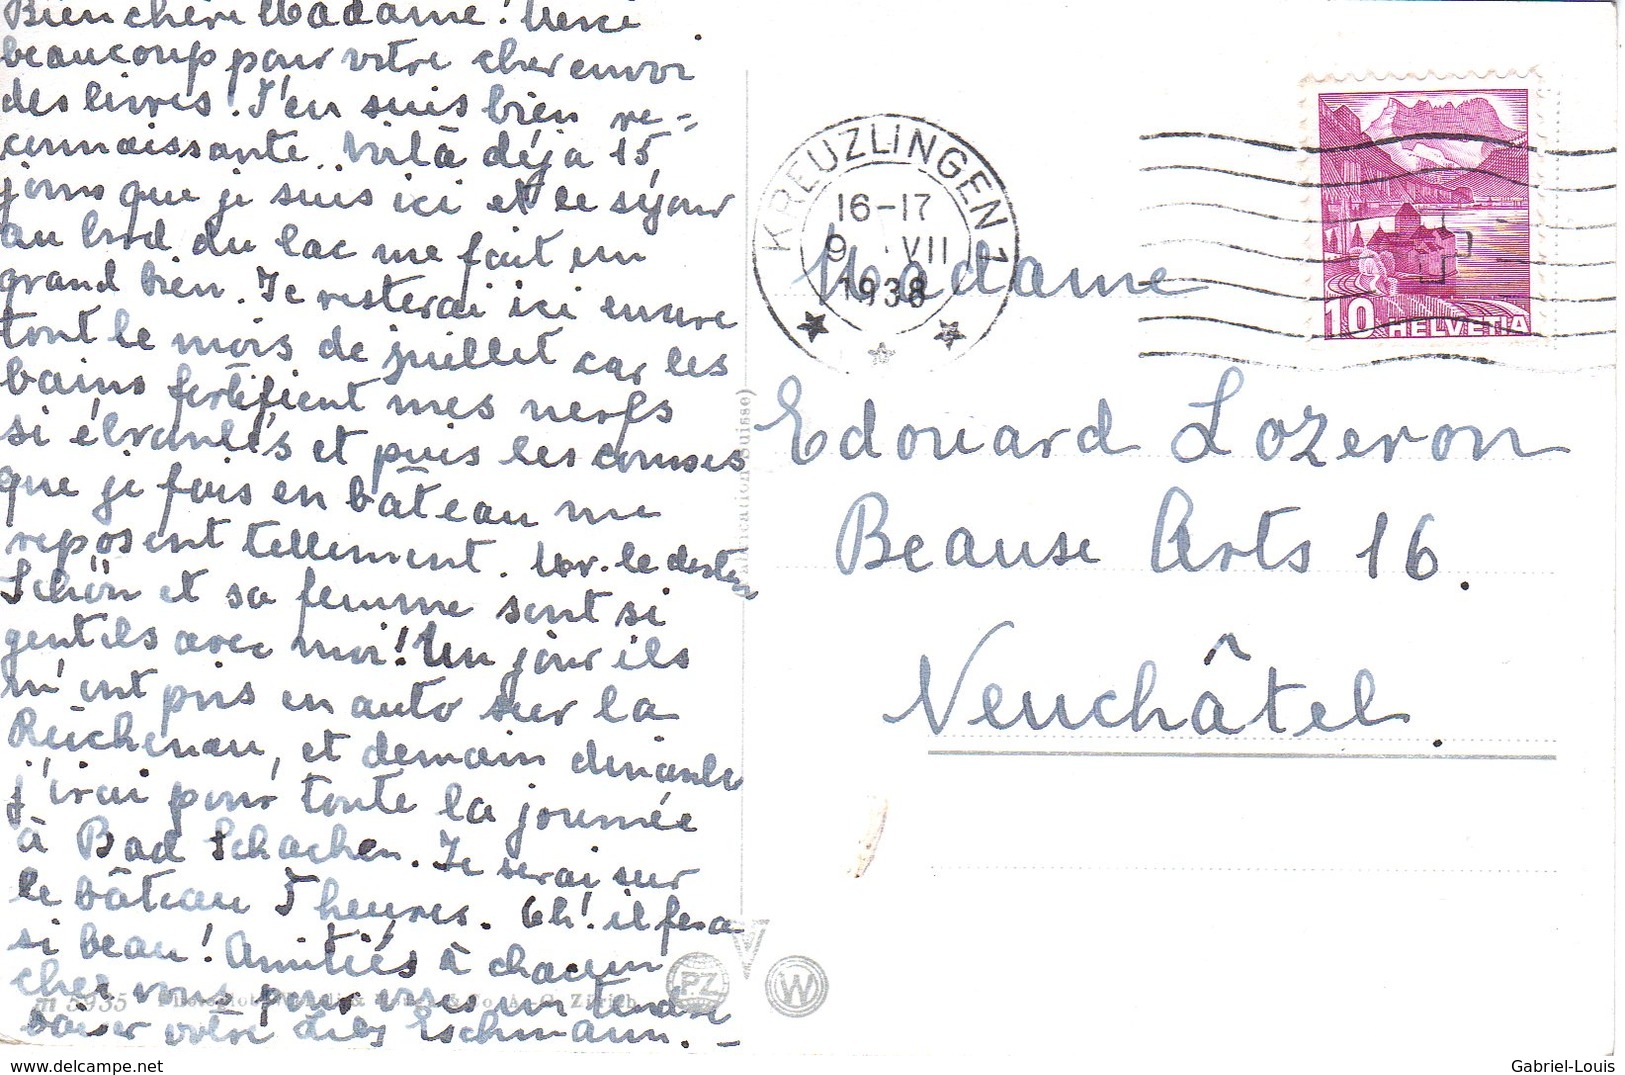 Bien chère Madame! Merci
beaucoup pour votre cher envoi
des livres! J'en suis bien re=
connaissante. Voilà déjà 15
jours que je suis ici et le séjour
au bord du lac me fait un
grand bien. Je resterai ici encore
tout le mois de juillet car les
bains fortifient mes nerfs
si ébranlés et puis les courses
que je fais en bâteau me
reposent tellement. Mr. le
Schön et sa femme sont si
gentils avec moi! Un jour ils
m'ont pris en auto sur la
Reichenau, et demain dimanche
j'irai pour toute la journée
à Bad Schachen. Je serai sur
le bâteau 5 heures. Oh! il fera
si beau! Amitiés à chacun
chez vous, pour vous un tendre
baiser votre Eschmann.
KREUZLINGEN 1
16-17
9. VII
1938
10 HELVETIA
Madame
Edouard Lozeron
Beause Arts 16.
Neuchâtel.
(Fabrication Suisse)
m 5935
& Co. A.-G. Zürich
PZ
W
https://www.delcampe.net
Gabriel-Louis